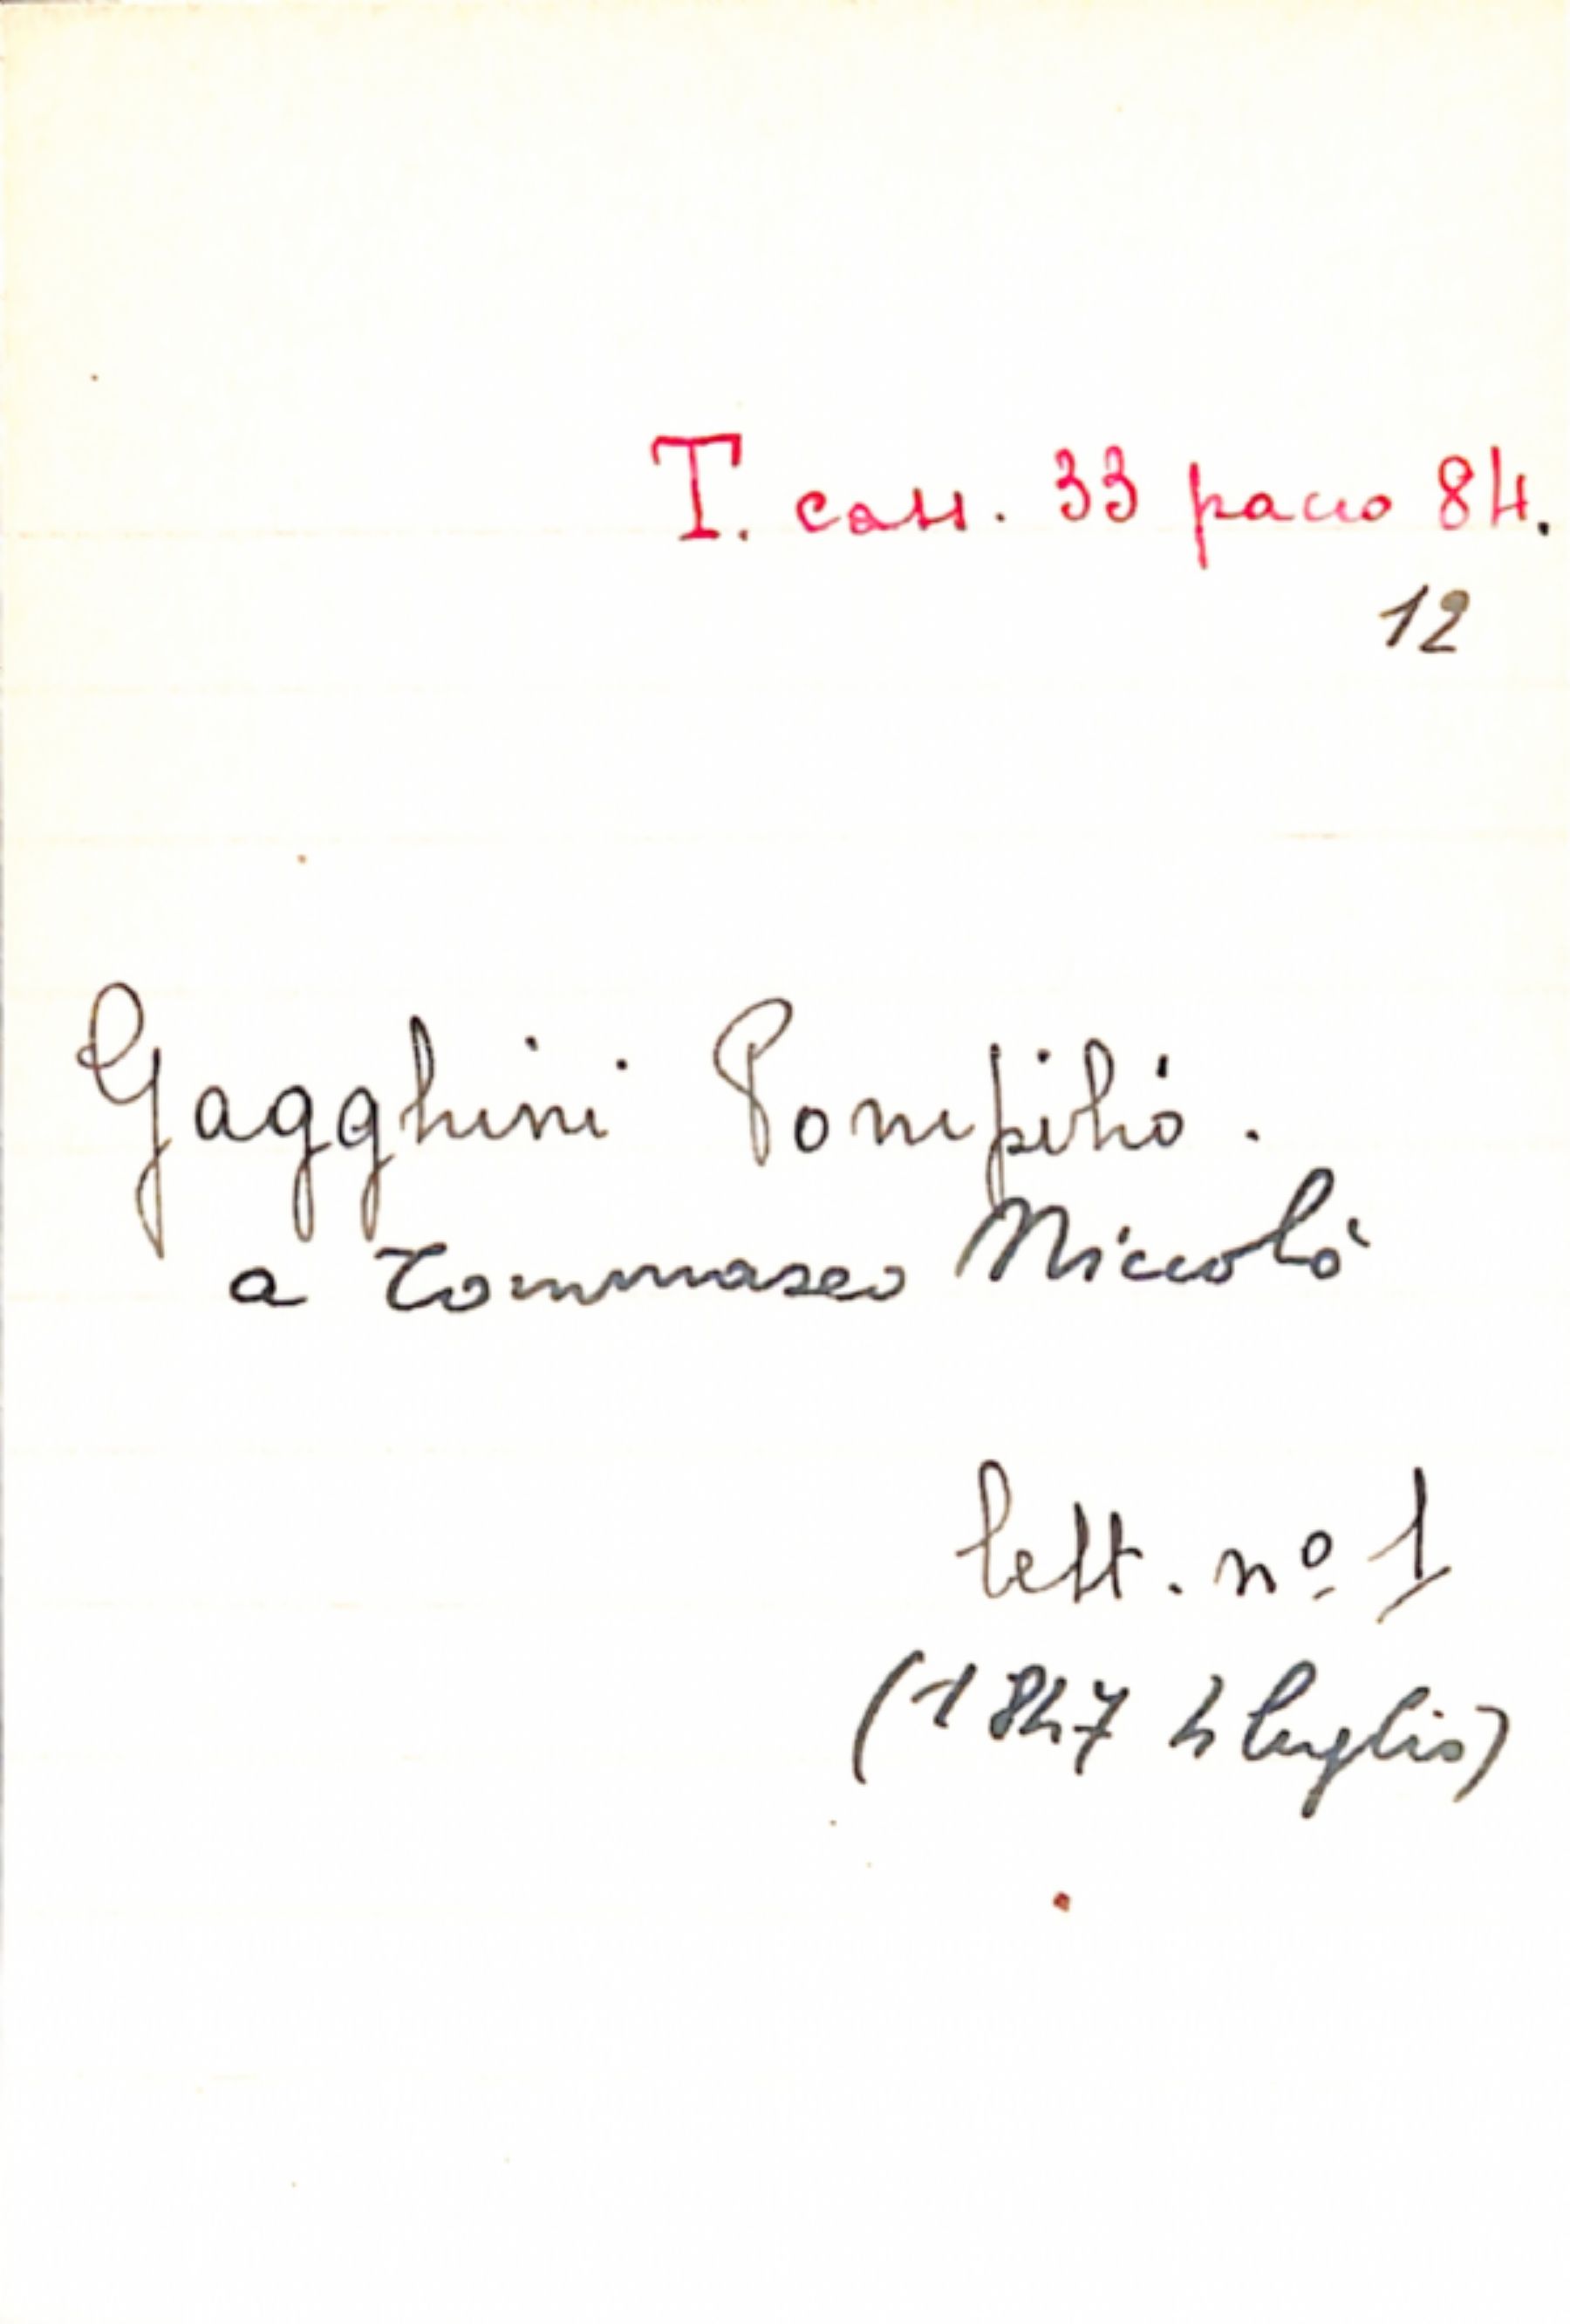 T. cass. 33 pacco 84.
12
Gagghini Pompilio.
a Tommaseo Niccolò
lett. nº 1
(1847 4 luglio)